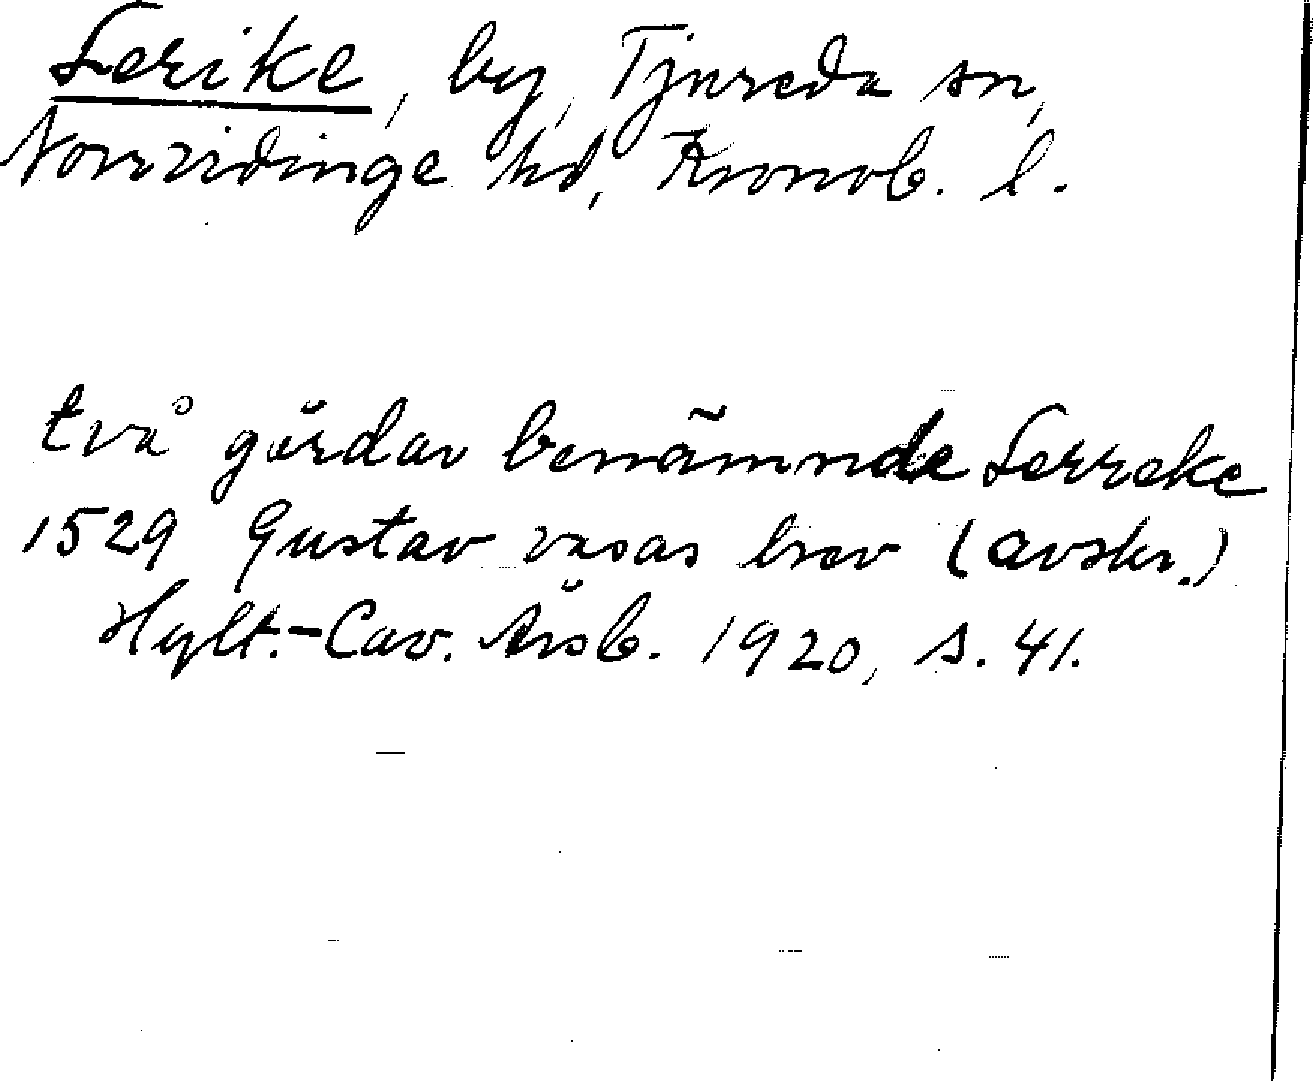 Lerike, by, Tjureda sn,
Norrvidinge hd, Kronob. l.
två gårdar benämnde Lerreke
1529 Gustav vasas brev (avskr.)
Hylt.-Cav. Årsb. 1920, s. 41.